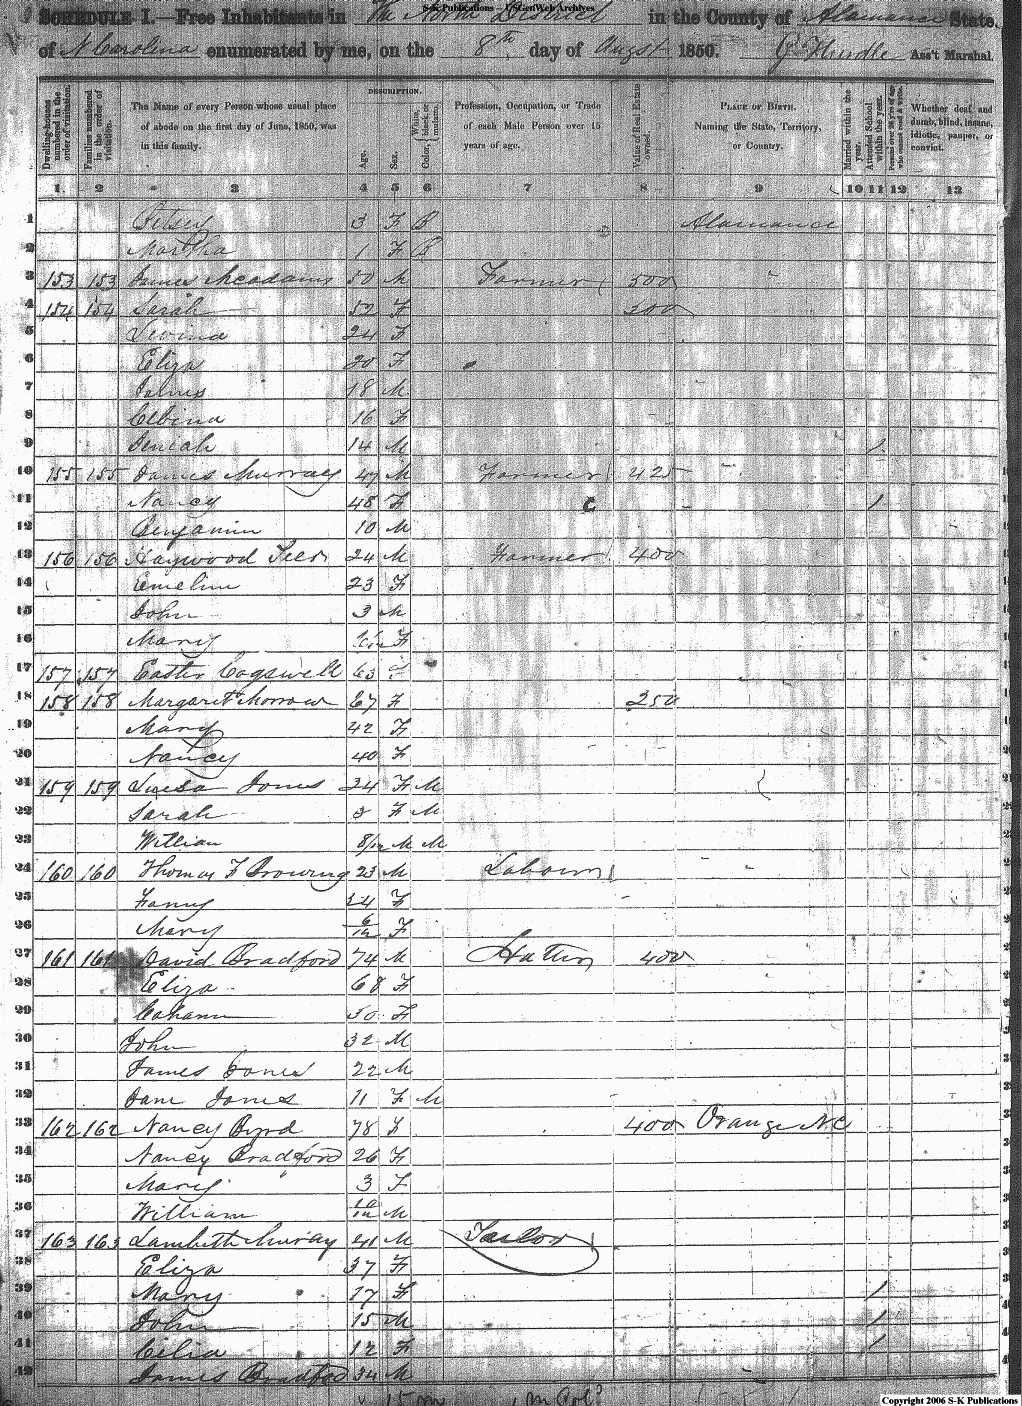 S-K Publications - USGenWeb Archives
SCHEDULE I.—Free Inhabitants in The North District in the County of Alamance State
of N Carolina enumerated by me, on the 8th day of Augst 1850. G Hurdle Ass't Marshal.
Dwelling-houses numbered in the order of visitation.
Families numbered in the order of visitation.
The Name of every Person whose usual place of abode on the first day of June, 1850, was in this family.
DESCRIPTION.
Age.
Sex.
Color, White, black, or mulatto.
Profession, Occupation, or Trade of each Male Person over 15 years of age.
Value of Real Estate owned.
PLACE OF BIRTH. Naming the State, Territory, or Country.
Married within the year.
Attended School within the year.
Persons over 20 y'rs of age who cannot read & write.
Whether deaf and dumb, blind, insane, idiotic, pauper, or convict.
1 2 3 4 5 6 7 8 9 10 11 12 13
1 Betsey 3 F B Alamance
2 Martha 1 F B
3 153 153 James Mcadams 50 M Farmer 500 "
4 154 154 Sarah 52 F 200
5 Levina 24 F
6 Eliza 20 F
7 James 18 M
8 Elbina 16 F
9 14 M 1
10 155 155 James Murray 47 M Farmer 425
11 Nancy 48 F 1
12 Benjamin 10 M
13 156 156 Haywood Teer 24 M Farmer 400
14 Emeline 23 F
15 John 3 M
16 Mary F
17 157 157 Easter Cogswell 63
18 158 158 Margaret Morrow 67 F 250
19 Mary 42 F
20 Nancy 40 F
21 159 159 Luesa Jones 24 F M
22 Sarah 3 F M
23 William 8/12 M M
24 160 160 Thomas F Browning 23 M Labourer
25 Fanny 24 F
26 Mary 6/12 F
27 161 161 David Bradford 74 M Hatter 400
28 Eliza 68 F
29 30 F
30 John 32 M
31 James Jones 22 M
32 Jane Jones 11 F M
33 162 162 Nancy Byrd 78 F 400 Orange NC
34 Nancy Bradford 26 F
35 Mary 3 F
36 William 10/12 M
37 163 163 Lambeth Muray 41 M Tailor
38 Eliza 37 F
39 Mary 17 F 1
40 John 15 M 1
41 Celia 12 F 1
42 James Bradford 34 M
15 m
Copyright 2006 S-K Publications